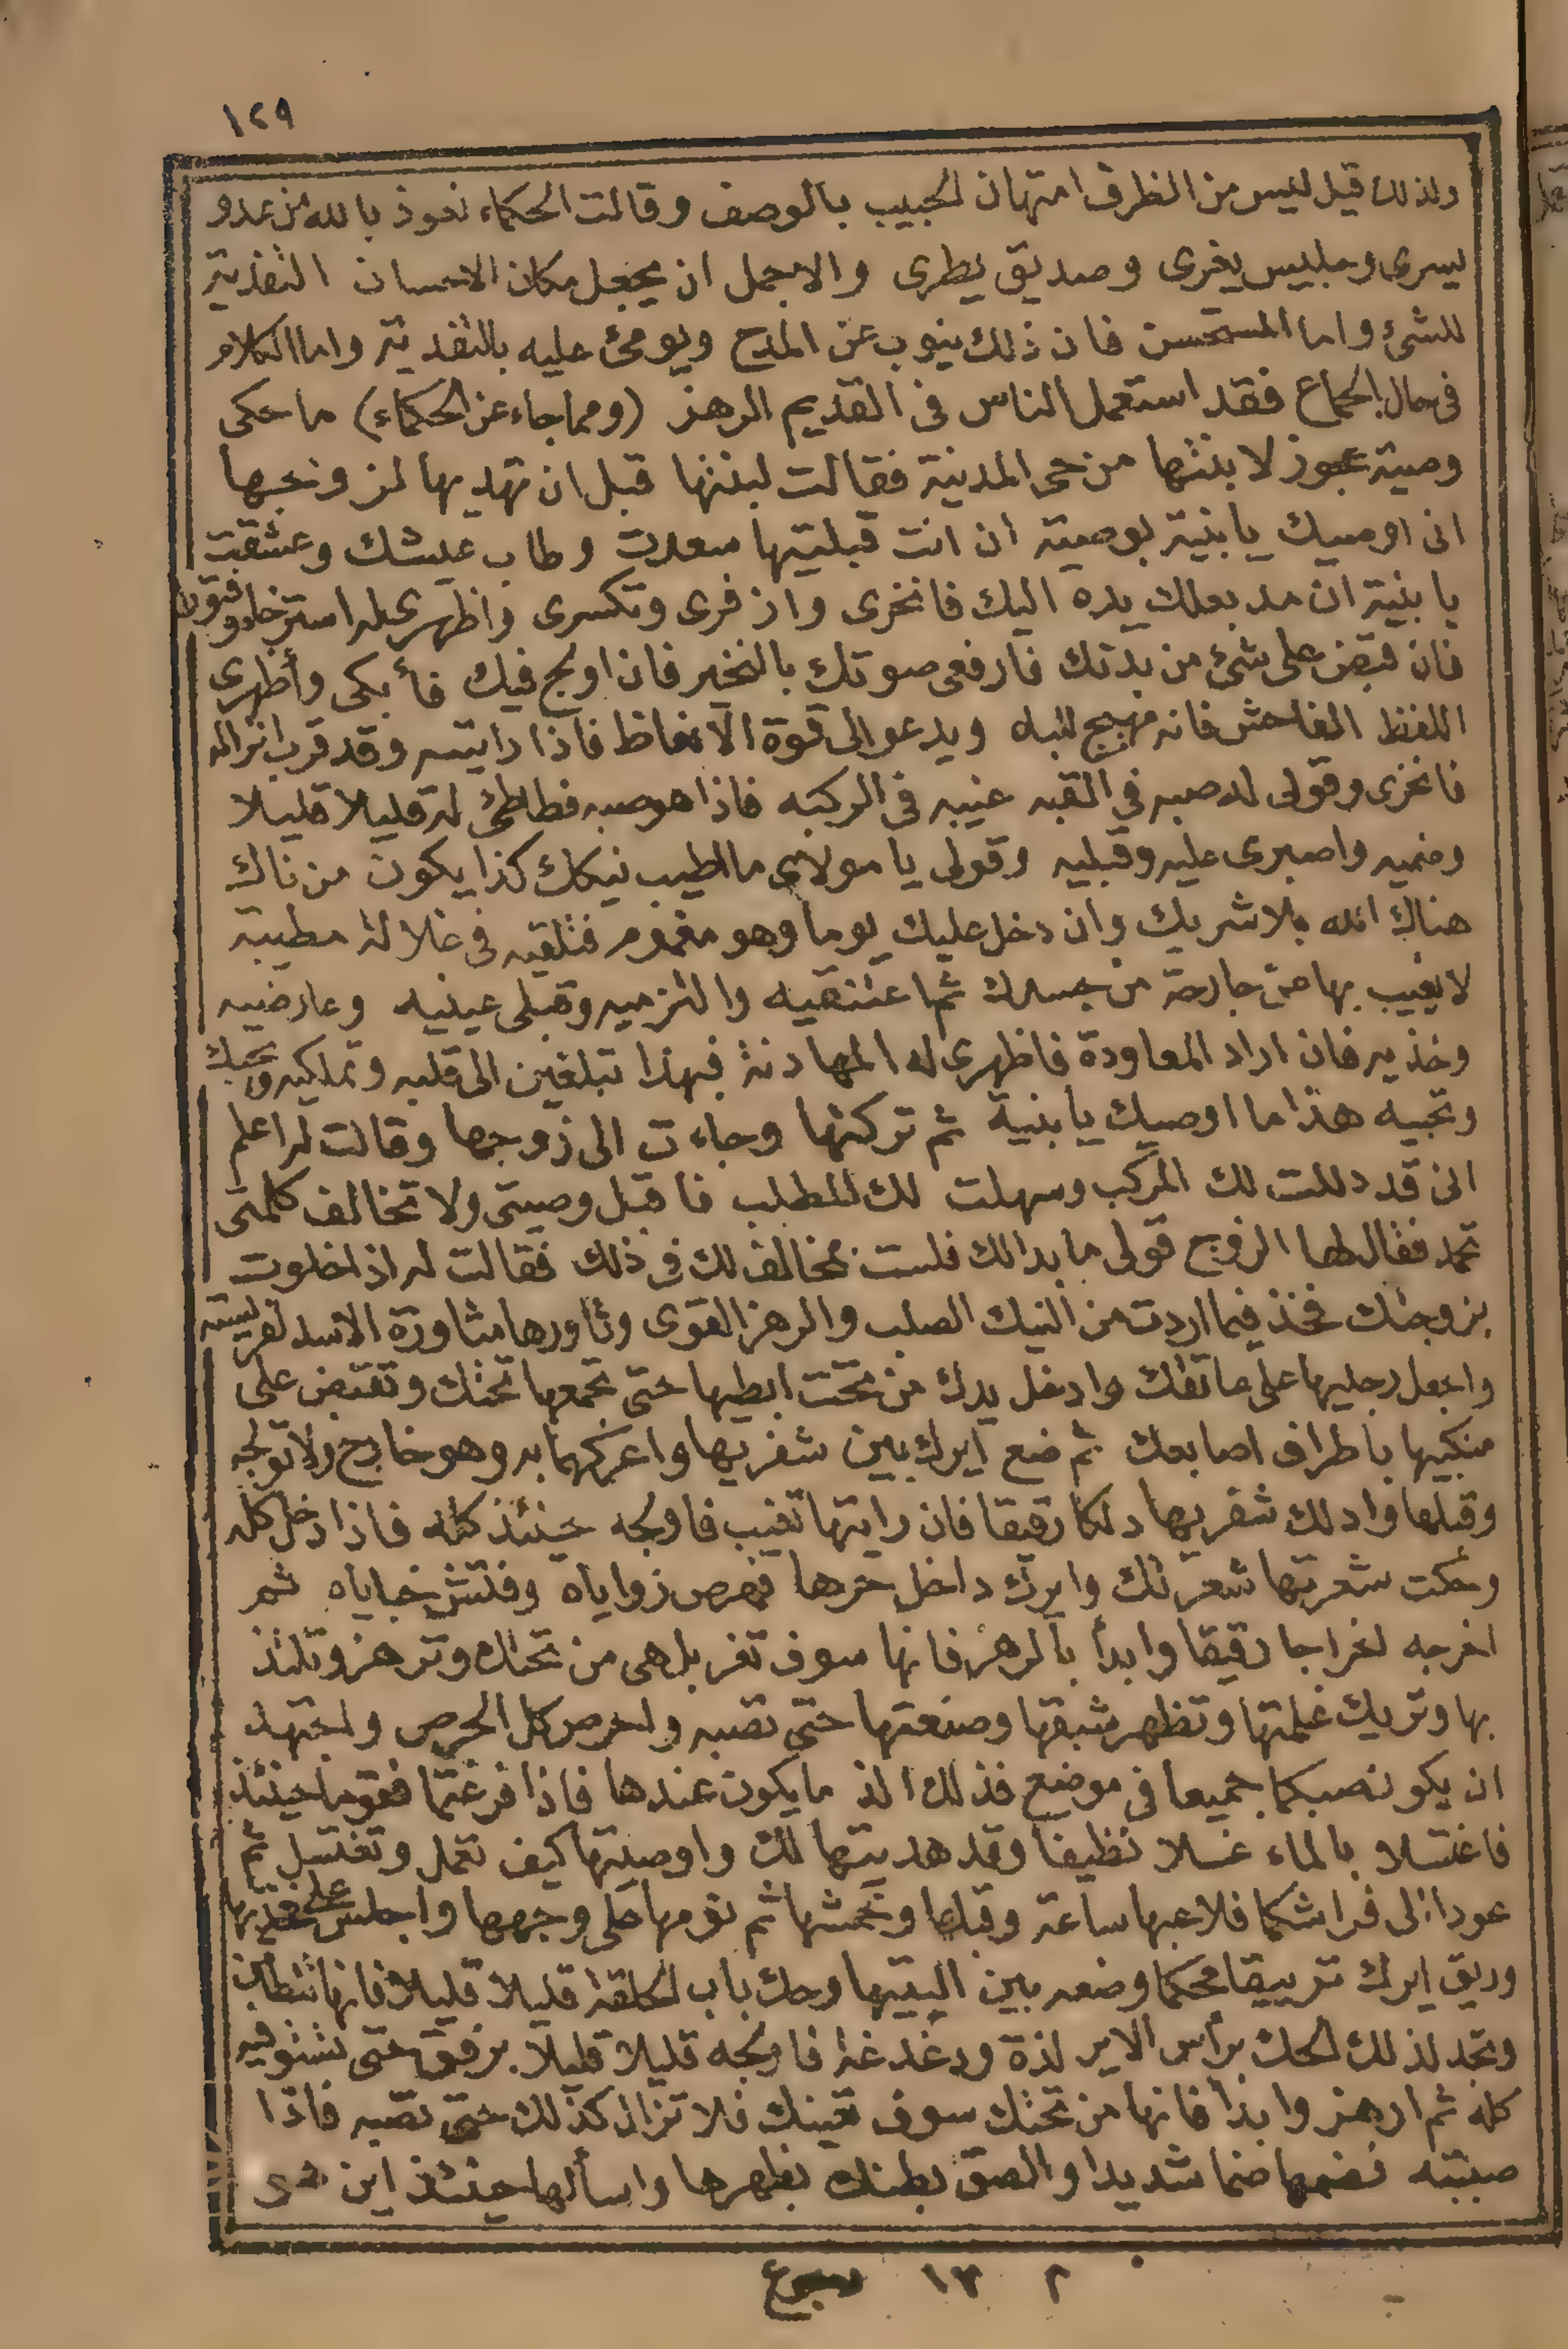 ١٢٩
ولذلك قيل ليس من الظرف امتهان الحبيب بالوصف وقالت الحكماء نعوذ بالله من عدو
يسرى وجليس يغرى وصديق يطرى والاجمل ان يجعل مكان الاحسان التفدية
للشئ واما المستحسن فان ذلك ينوب عن المدح ويومئ عليه بالتفدية واما الكلام
فى حال الجماع فقد استعمل الناس فى القديم الرهز (ومما جاء عن الحكماء) ما حكى
وصية عجوز لابنتها من حى المدينة فقالت لبنتها قبل ان تهديها لزوجها
انى اوصيك يا بنية بوصية ان انت قبلتيها سعدت وطاب عيشك وعشقت
يا بنية ان مد بعلك يده اليك فانخرى وازفرى وتكسرى واظهرى له استرخاء وفتورا
فان قبض على شئ من بدنك فارفعى صوتك بالنخير فان اولج فيك فأبكى وأظهرى
اللفظ الفاحش فانه مهيج للباه ويدعو الى قوة الانعاظ فاذا رايتيه وقد قرب انزاله
فانخرى وقولى له صبه في القبه غيبه فى الركبه فاذا هو صبه فطاطئ له قليلا قليلا
وضميه واصبرى عليه وقبليه وقولى يا مولاى ما اطيب نيكك كذا يكون من ناك
هناك الله بلا شريك وان دخل عليك يوما وهو مغموم فتلقيه فى غلالة مطيبة
لا يغيب بها عنه جارحة من جسدك ثم اعتنقيه والتزميه وقبلى عينيه وعارضيه
وخذيه فان اراد المعاودة فاظهرى له المهادنة فبهذا تبلغين الى قلبه وتملكيه ويحبك
وتحبيه هذا ما اوصيك يا بنية ثم تركتها وجاءت الى زوجها وقالت له اعلم
انى قد دللت لك المركب وسهلت لك المطلب فاقبل وصيتى ولا تخالف كلمتى
تحمد فقال لها الزوج قولى ما بدا لك فلست بمخالف لك فى ذلك فقالت له اذا خلوت
بزوجتك فخذ فيما اردت من النيك الصلب والرهز القوى وثاورها مثاورة الاسد لفريسته
واجعل رجليها على عاتقك وادخل يدك من تحت ابطيها حتى تجمعها تحتك وتقبض على
منكبيها باطراف اصابعك ثم ضع ايرك بين شفريها واعركهما به وهو خارج ولا تولجه
وقبلها وادلك شفريها دلكا رقيقا فان رايتها تغيب فاولجه حينئذ كله فاذا دخل كله
وحكت شعرتها شعرتك وايرك داخل حرها فهرص زواياه وفتش خباياه ثم
اخرجه اخراجا رقيقا وابدأ بالرهز فانها سوف تغربل هى من تحتك وترهز وتلتذ
بها وتريك غلمتها وتظهر شبقها وصنعتها حتى تصبه واحرص كل الحرص واجتهد
ان يكون صبكما جميعا فى موضع فذلك الذ ما يكون عندها فاذا فرغتما فقوما حينئذ
فاغتسلا بالماء غسلا نظيفا وقد هديتها لك واوصيتها كيف تعمل وتغتسل ثم
عودا الى فراشكما فلاعبها ساعة وقبلها وخمشها ثم نومها على وجهها واجلس على فخذيها
وريق ايرك ترييقا محكما وضعه بين اليتيها وحك باب الحلقة قليلا قليلا فانها تتطامن
وتجد لذلك الحك برأس الاير لذة ودغدغة فاولجه قليلا قليلا برفق حتى تستوفيه
كله ثم ارهز وابدأ فانها من تحتك سوف تعينك فلا تزال كذلك حتى تصبه فاذا
صببته فضمها ضما شديدا والصق بطنك بظهرها واسألها حينئذ اين
م ١٣ رجوع